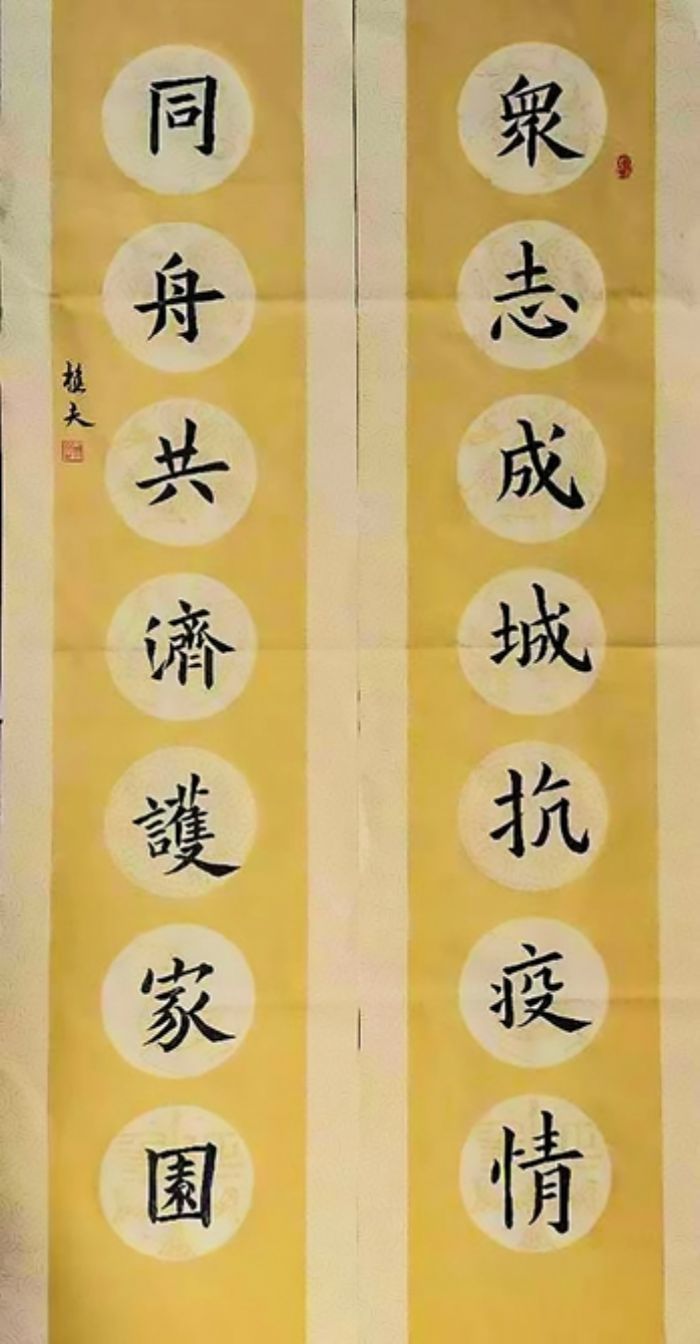 眾志成城抗疫情
同舟共濟護家園
植夫